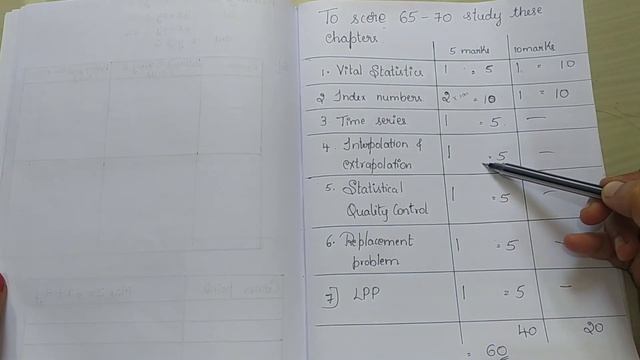 To score 65-70 study these
chapters
5 marks 10 marks
1. Vital Statistics 1 = 5 1 = 10
2 Index numbers 2 = 10 1 = 10
3 Time series 1 = 5 —
4. Interpolation & 1 = 5 —
extrapolation
5. Statistical 1 = 5 —
Quality Control
6. Replacement 1 = 5 —
problem
7] LPP 1 = 5 —
40 20
= 60